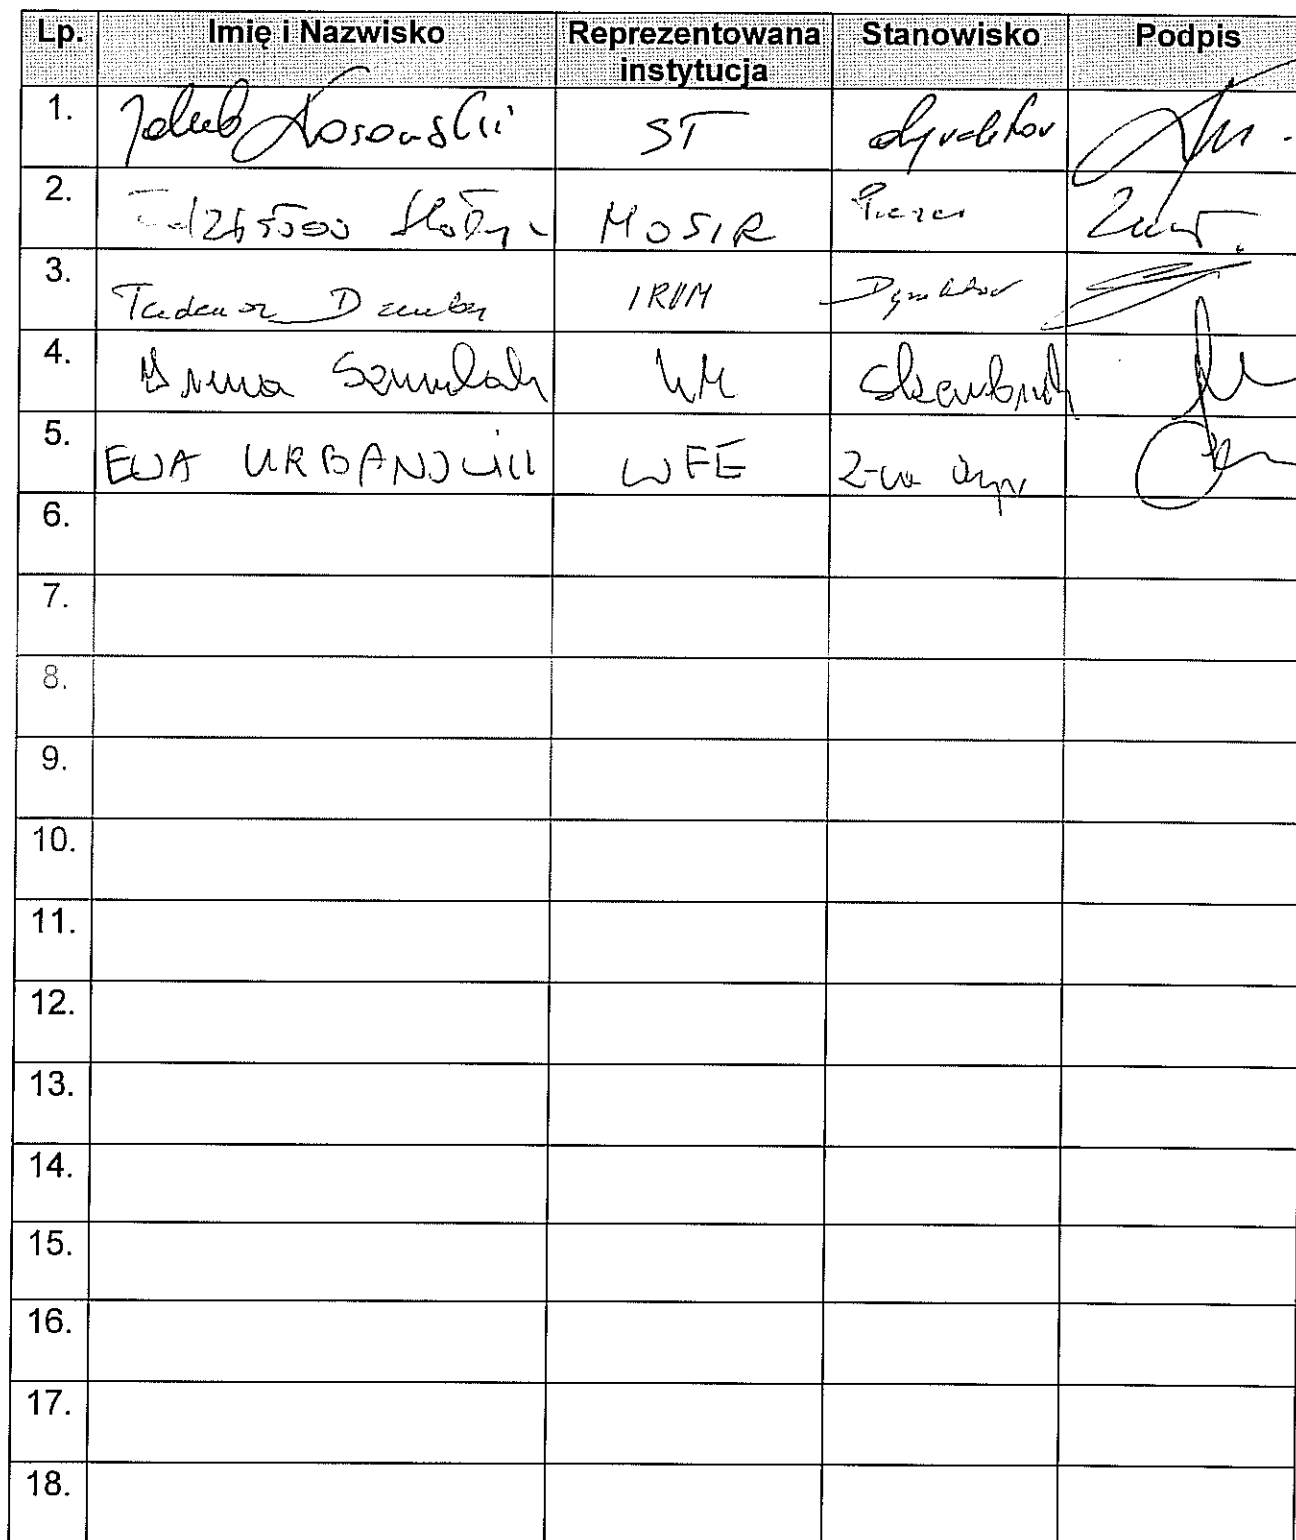 Lp. Imię i Nazwisko Reprezentowana instytucja Stanowisko Podpis
1. Jakub Kosowski ST dyrektor
2. MOSIR Prezes
3. Tadeusz Dziuba Dyrektor
4. Irena Szumlak UM Skarbnik
5. EWA URBANOWICZ WFE Z-ca dyr
6.
7.
8.
9.
10.
11.
12.
13.
14.
15.
16.
17.
18.